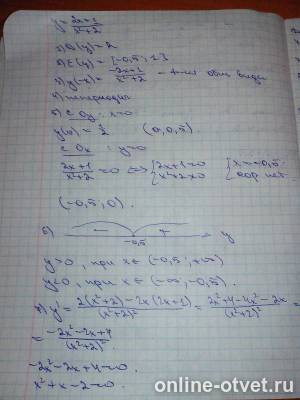 y = (2x+1)/(x²+2)
1) D(y) = R
2) E(y) = [-0,5; 1]
3) y(-x) = (-2x+1)/(x²+2) -
4)
5) с Oy: x=0
y(0) = 1/2 (0; 0,5)
с Ox: y=0
(2x+1)/(x²+2) = 0 ⇔ { 2x+1=0 { x=-0,5
x²+2≠0 нет
(-0,5; 0).
6) - + -0,5 y
y>0, при x∈(-0,5; +∞)
y<0, при x∈(-∞; -0,5).
y' = (2(x²+2)-2x(2x+1))/(x²+2)² = (2x²+4-4x²-2x)/(x²+2)² =
= (-2x²-2x+4)/(x²+2)²
-2x²-2x+4=0.
x²+x-2=0.
online-otvet.ru